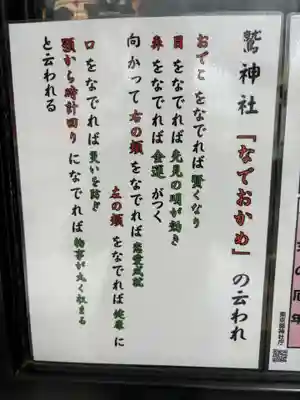 鷲神社「なでおかめ」の云われ
おでこをなでれば賢くなり
目をなでれば先見の明が効き
鼻をなでれば金運がつく
向かって右の頬をなでれば恋愛成就
左の頬をなでれば健康に
口をなでれば災いを防ぎ
顎から時計回りになでれば物事が丸く収まる
と云われる
東京都神社庁